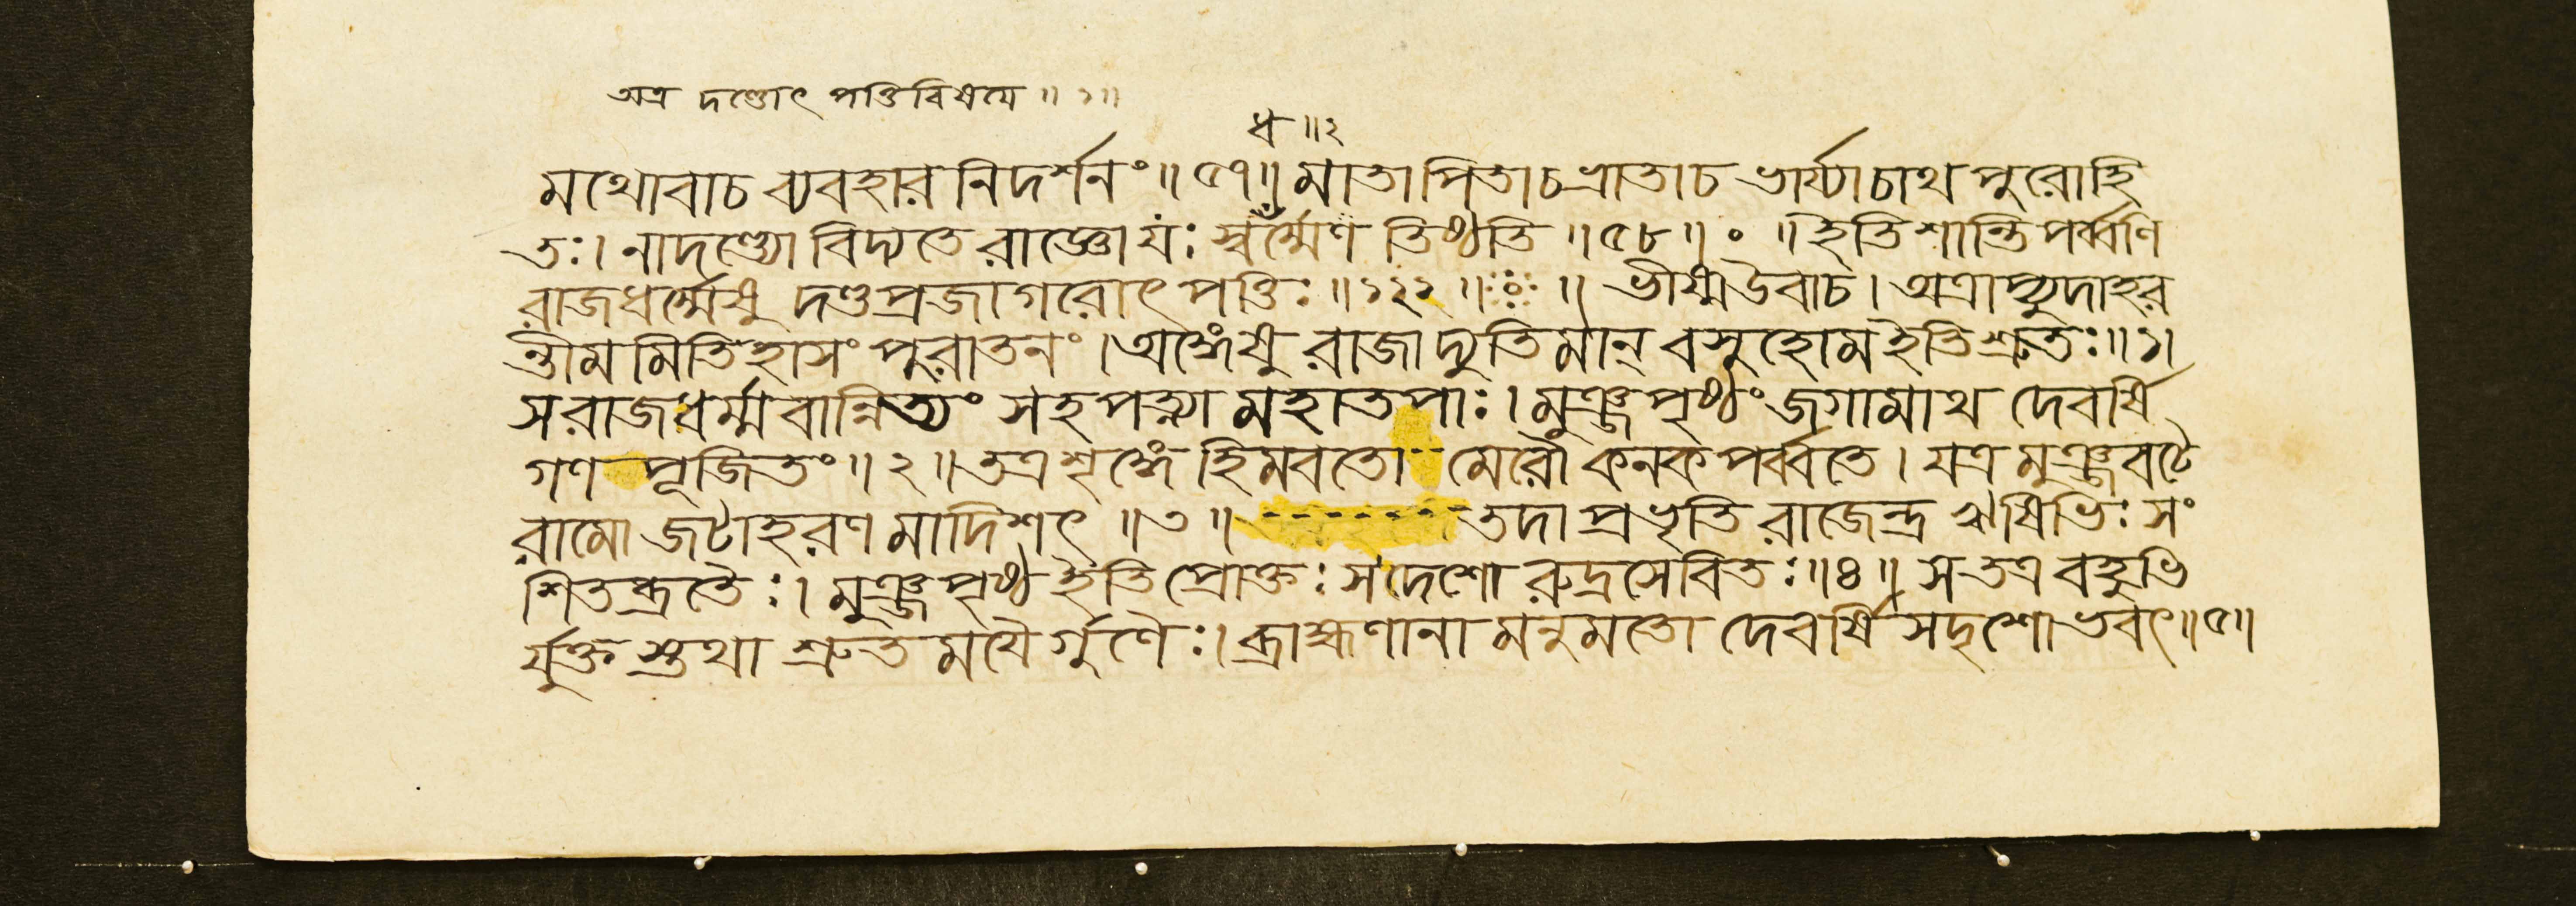 অত্র দণ্ডোৎপত্তিবিষয়ে ॥ ১॥
ধ ॥২
মথোবাচ ব্যবহারনিদর্শনং॥ ৫৭॥ মাতাপিতাচভ্রাতাচ ভার্য্যাচাথ পুরোহি
তঃ। নাদণ্ড্যো বিদ্যতে রাজ্ঞো যঃ স্বধর্ম্মেণ তিষ্ঠতি ॥৫৮॥ ॰ ॥ ইতি শান্তিপর্ব্বণি
রাজধর্ম্মেষু দণ্ডপ্রজাগরোৎপত্তিঃ॥১২২॥ ॥ ভীষ্মউবাচ। অত্রাপ্যুদাহর
ন্তীমমিতিহাসং পুরাতনং। অঙ্গেষু রাজা দ্যুতিমান্ বসুহোমইতিশ্রুতঃ॥১।
সরাজধর্ম্মবান্নিত্যং সহপত্ন্যা মহাতপাঃ। মুঞ্জপৃষ্ঠং জগামাথ দেবর্ষি
গণ পূজিতং॥২॥তত্রশৃঙ্গে হিমবতো মেরৌ কনকপর্ব্বতে। যত্র মুঞ্জবটে
রামো জটাহরণমাদিশৎ ॥৩॥ তদাপ্রভৃতি রাজেন্দ্র ঋষিভিঃ সং
শিতব্রতৈঃ। মুঞ্জপৃষ্ঠ ইতি প্রোক্তঃ সদেশো রুদ্রসেবিতঃ॥৪॥ সতত্র বহুভি
র্যুক্ত স্তথা শ্রুতময়ৈর্গুণৈঃ। ব্রাহ্মণানামনুমতো দেবর্ষিসদৃশোভবৎ॥৫॥